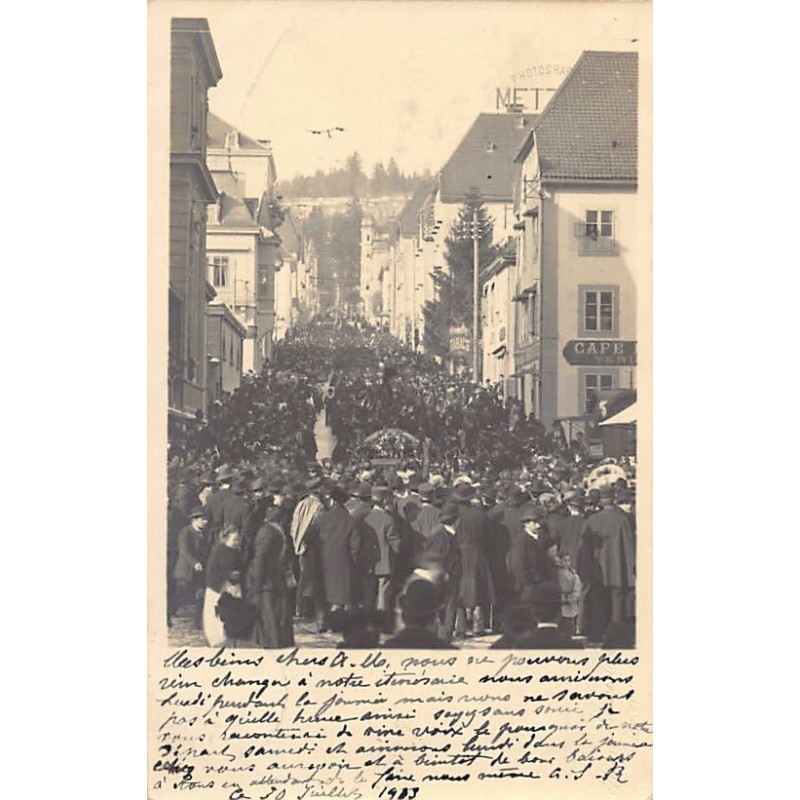 PHOTOGRA
METZ
TABACS
CAFE
Mes biens chers A. M. nous ne pouvons plus
rien changer à notre itineraire nous arriverons
Lundi pendant la journée mais nous ne savons
pas à quelle heure ainsi soyez sans souci je
vous raconterai de vive voix le pourquoi de notre
Départ samedi et arriverons lundi dans la journée
chez vous au revoir et à bientôt de bons baisers
à tous en attendant de le faire nous même A. S. R
Ce 30 Juillet 1903